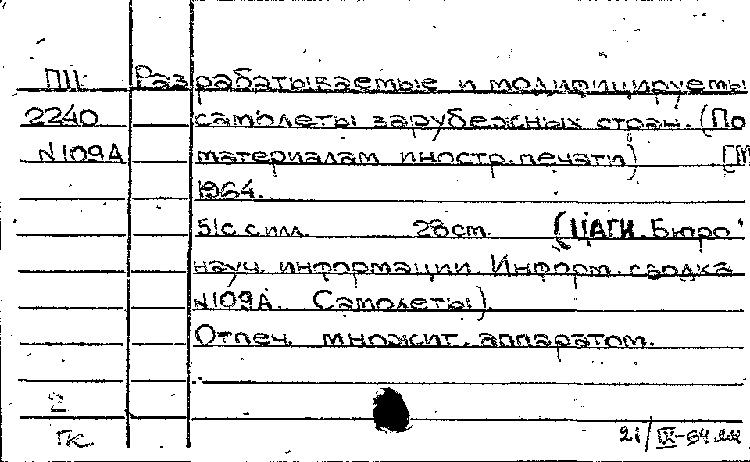 ПII Разрабатываемые и модифицируемы
2240 самолеты зарубежных стран. (По
N109А материалам иностр. печати) [М
1964.
51с с илл. 28см. (ЦАГИ. Бюро
науч. информации. Информ. сводка
N109А. Самолеты).
Отпеч. множит. аппаратом.
2
ГК 21/IX-64